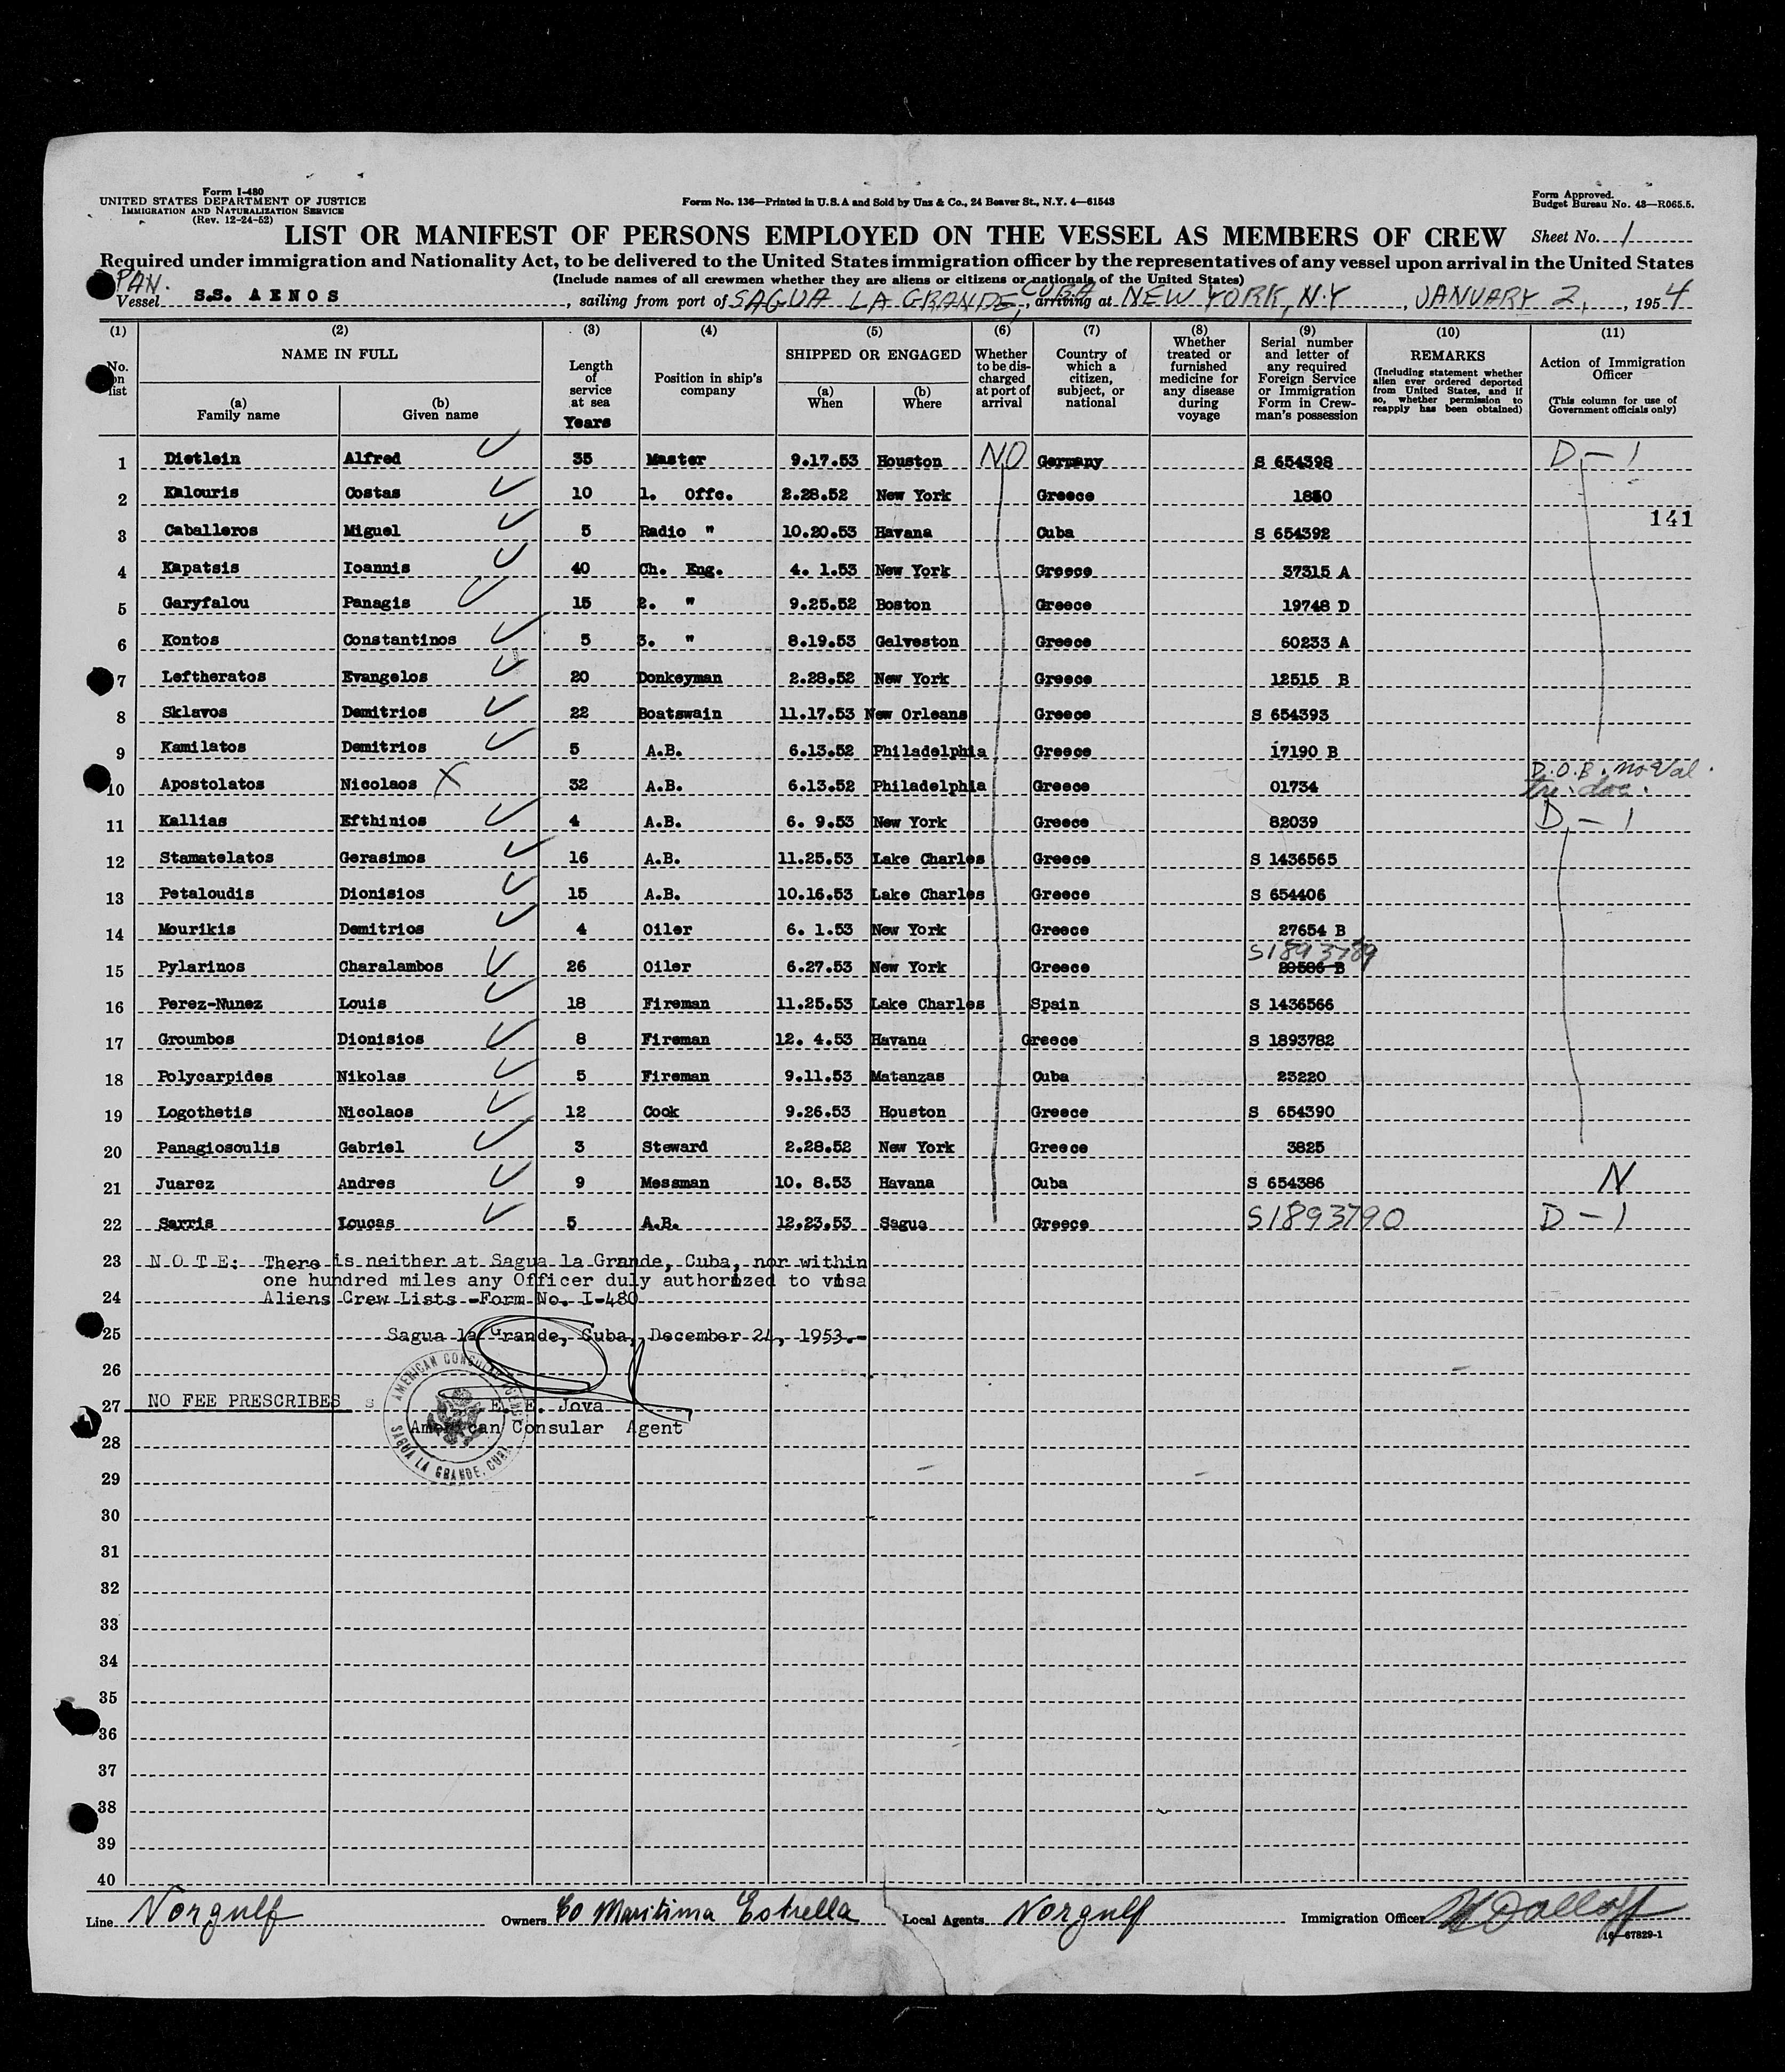 Form I-480
UNITED STATES DEPARTMENT OF JUSTICE
IMMIGRATION AND NATURALIZATION SERVICE
(Rev. 12-24-52)
Form No. 136—Printed in U.S.A and Sold by Unz & Co., 24 Beaver St., N.Y. 4—61543
Form Approved.
Budget Bureau No. 43—R065.5.
LIST OR MANIFEST OF PERSONS EMPLOYED ON THE VESSEL AS MEMBERS OF CREW
Sheet No. 1
Required under immigration and Nationality Act, to be delivered to the United States immigration officer by the representatives of any vessel upon arrival in the United States
(Include names of all crewmen whether they are aliens or citizens or nationals of the United States)
PAN.
Vessel S.S. AENOS, sailing from port of SAGUA LA GRANDE, CUBA, arriving at NEW YORK, N.Y, JANUARY 2, 1954
(1) (2) (3) (4) (5) (6) (7) (8) (9) (10) (11)
No. on list
NAME IN FULL
(a) Family name
(b) Given name
Length of service at sea
Years
Position in ship's company
SHIPPED OR ENGAGED
(a) When
(b) Where
Whether to be discharged at port of arrival
Country of which a citizen, subject, or national
Whether treated or furnished medicine for any disease during voyage
Serial number and letter of any required Foreign Service or Immigration Form in Crewman's possession
REMARKS
(Including statement whether alien ever ordered deported from United States, and if so, whether permission to reapply has been obtained)
Action of Immigration Officer
(This column for use of Government officials only)
1 Dietlein Alfred ✓ 35 Master 9.17.53 Houston NO Germany S 654398 D-1
2 Kalouris Costas ✓ 10 1. Offc. 2.28.52 New York Greece 1850
141
3 Caballeros Miguel ✓ 5 Radio " 10.20.53 Havana Cuba S 654392
4 Kapatsis Ioannis ✓ 40 Ch. Eng. 4. 1.53 New York Greece 37315 A
5 Garyfalou Panagis ✓ 15 2. " 9.25.52 Boston Greece 19748 D
6 Kontos Constantinos ✓ 5 3. " 8.19.53 Galveston Greece 60233 A
7 Leftheratos Evangelos ✓ 20 Donkeyman 2.28.52 New York Greece 12515 B
8 Sklavos Demitrios ✓ 22 Boatswain 11.17.53 New Orleans Greece S 654393
9 Kamilatos Demitrios ✓ 5 A.B. 6.13.52 Philadelphia Greece 17190 B
10 Apostolatos Nicolaos X 32 A.B. 6.13.52 Philadelphia Greece 01734 D.O.B. no val. trv. doc.
11 Kallias Efthinios ✓ 4 A.B. 6. 9.53 New York Greece 82039 D-1
12 Stamatelatos Gerasimos ✓ 16 A.B. 11.25.53 Lake Charles Greece S 1436565
13 Petaloudis Dionisios ✓ 15 A.B. 10.16.53 Lake Charles Greece S 654406
14 Mourikis Demitrios ✓ 4 Oiler 6. 1.53 New York Greece 27654 B
S1893789
15 Pylarinos Charalambos ✓ 26 Oiler 6.27.53 New York Greece 20586 B
16 Perez-Nunez Louis ✓ 18 Fireman 11.25.53 Lake Charles Spain S 1436566
17 Groumbos Dionisios ✓ 8 Fireman 12. 4.53 Havana Greece S 1893782
18 Polycarpides Nikolas ✓ 5 Fireman 9.11.53 Matanzas Cuba 23220
19 Logothetis Nicolaos ✓ 12 Cook 9.26.53 Houston Greece S 654390
20 Panagiosoulis Gabriel ✓ 3 Steward 2.28.52 New York Greece 3825
21 Juarez Andres ✓ 9 Messman 10. 8.53 Havana Cuba S 654386 N
22 Sarris Loucas ✓ 5 A.B. 12.23.53 Sagua Greece S1893790 D-1
23 N O T E: There is neither at Sagua la Grande, Cuba, nor within
one hundred miles any Officer duly authorized to visa
24 Aliens Crew Lists -Form No. I-480
25 Sagua la Grande, Cuba, December 24, 1953.-
26
27 NO FEE PRESCRIBES
E. E. Jova
American Consular Agent
AMERICAN CONSULAR AGENCY
SAGUA LA GRANDE, CUBA
28
29
30
31
32
33
34
35
36
37
38
39
40
Line Norgulf Owners Co Maritima Estrella Local Agents Norgulf Immigration Officer
16—67829-1